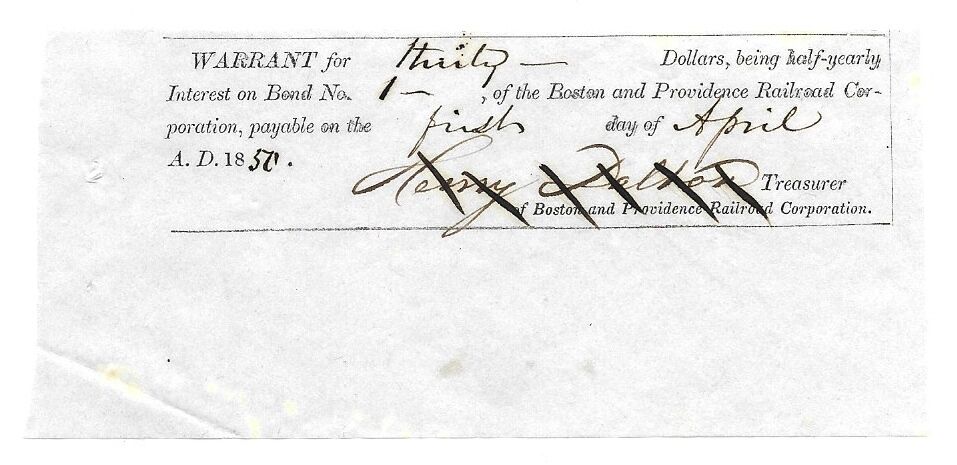 WARRANT for thirty — Dollars, being half-yearly
Interest on Bond No. 1 — , of the Boston and Providence Railroad Cor-
poration, payable on the first day of April
A. D. 1850.
Henry Dalton Treasurer
of Boston and Providence Railroad Corporation.